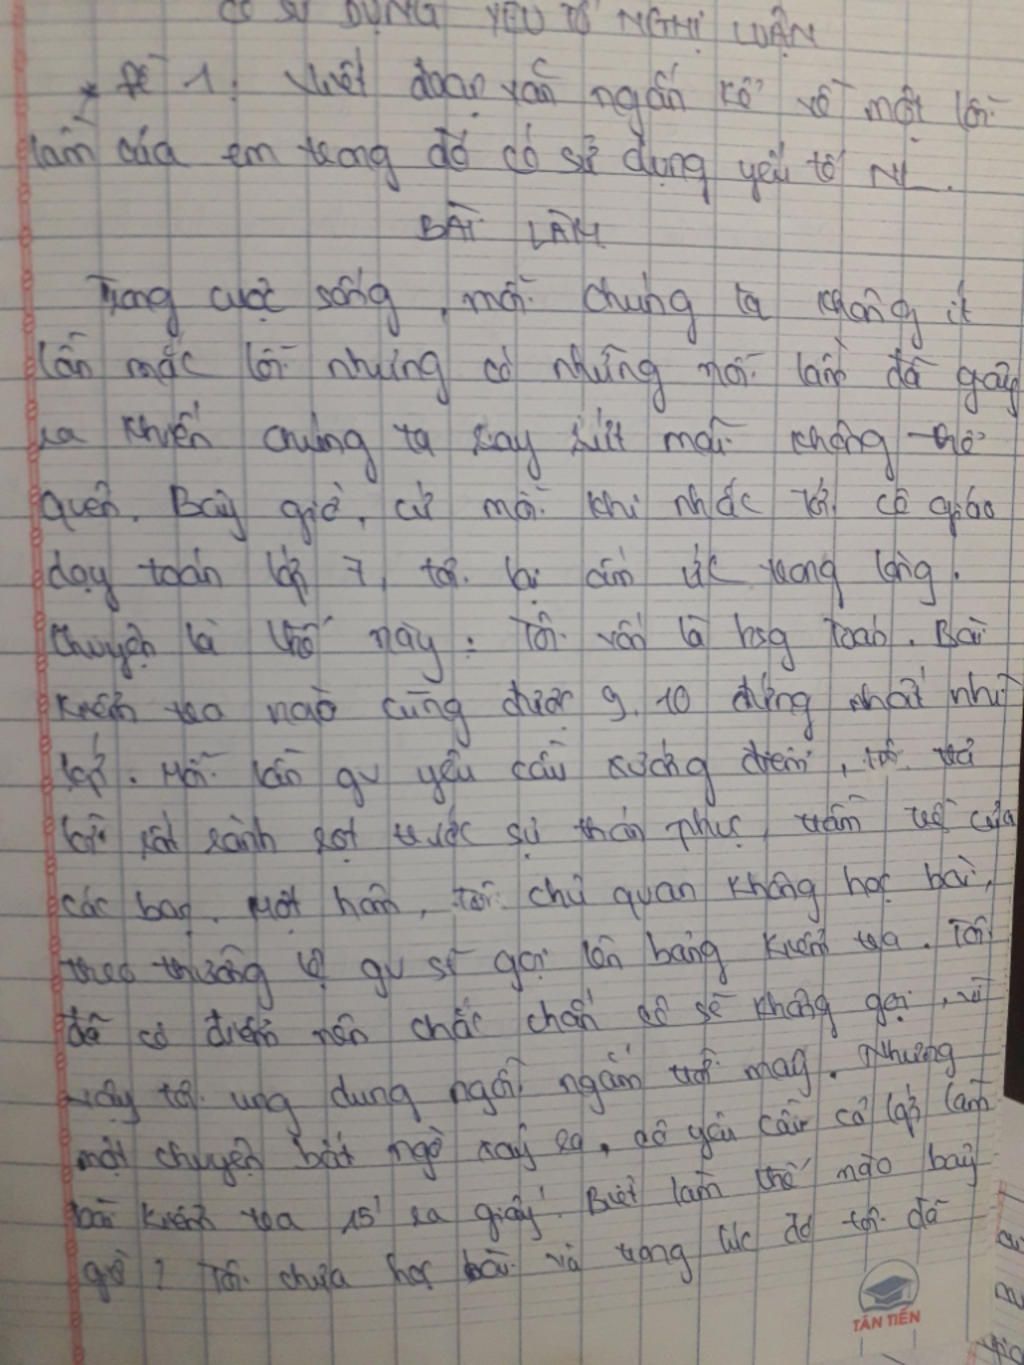 CÓ SỬ DỤNG YẾU TỐ NGHỊ LUẬN
* Đề 1: Viết đoạn văn ngắn kể về một lỗi
lầm của em trong đó có sử dụng yếu tố NL.
BÀI LÀM
Trong cuộc sống, mỗi chúng ta không ít
lần mắc lỗi nhưng có những lỗi lầm đã gây
ra khiến chúng ta day dứt mãi không thể
quên. Bây giờ, cứ mỗi khi nhắc tới cô giáo
dạy toán lớp 7, tôi lại ấm ức trong lòng.
Chuyện là thế này: Tôi vốn là hsg toán. Bài
kiểm tra nào cũng được 9, 10 đứng nhất nhì
lớp. Mỗi lần gv yêu cầu xướng điểm, tôi trả
lời rất rành rọt trước sự thán phục, trầm trồ của
các bạn. Một hôm, tôi chủ quan không học bài,
theo thường lệ gv sẽ gọi lên bảng kiểm tra. Tôi
đã có điểm nên chắc chắn cô sẽ không gọi, vì
vậy tôi ung dung ngồi ngắm trời mây. Nhưng
một chuyện bất ngờ xảy ra, cô yêu cầu cả lớp làm
bài kiểm tra 15' ra giấy! Biết làm thế nào bây
giờ? Tôi chưa học bài và trong lúc đó tôi đã
TÂN TIẾN